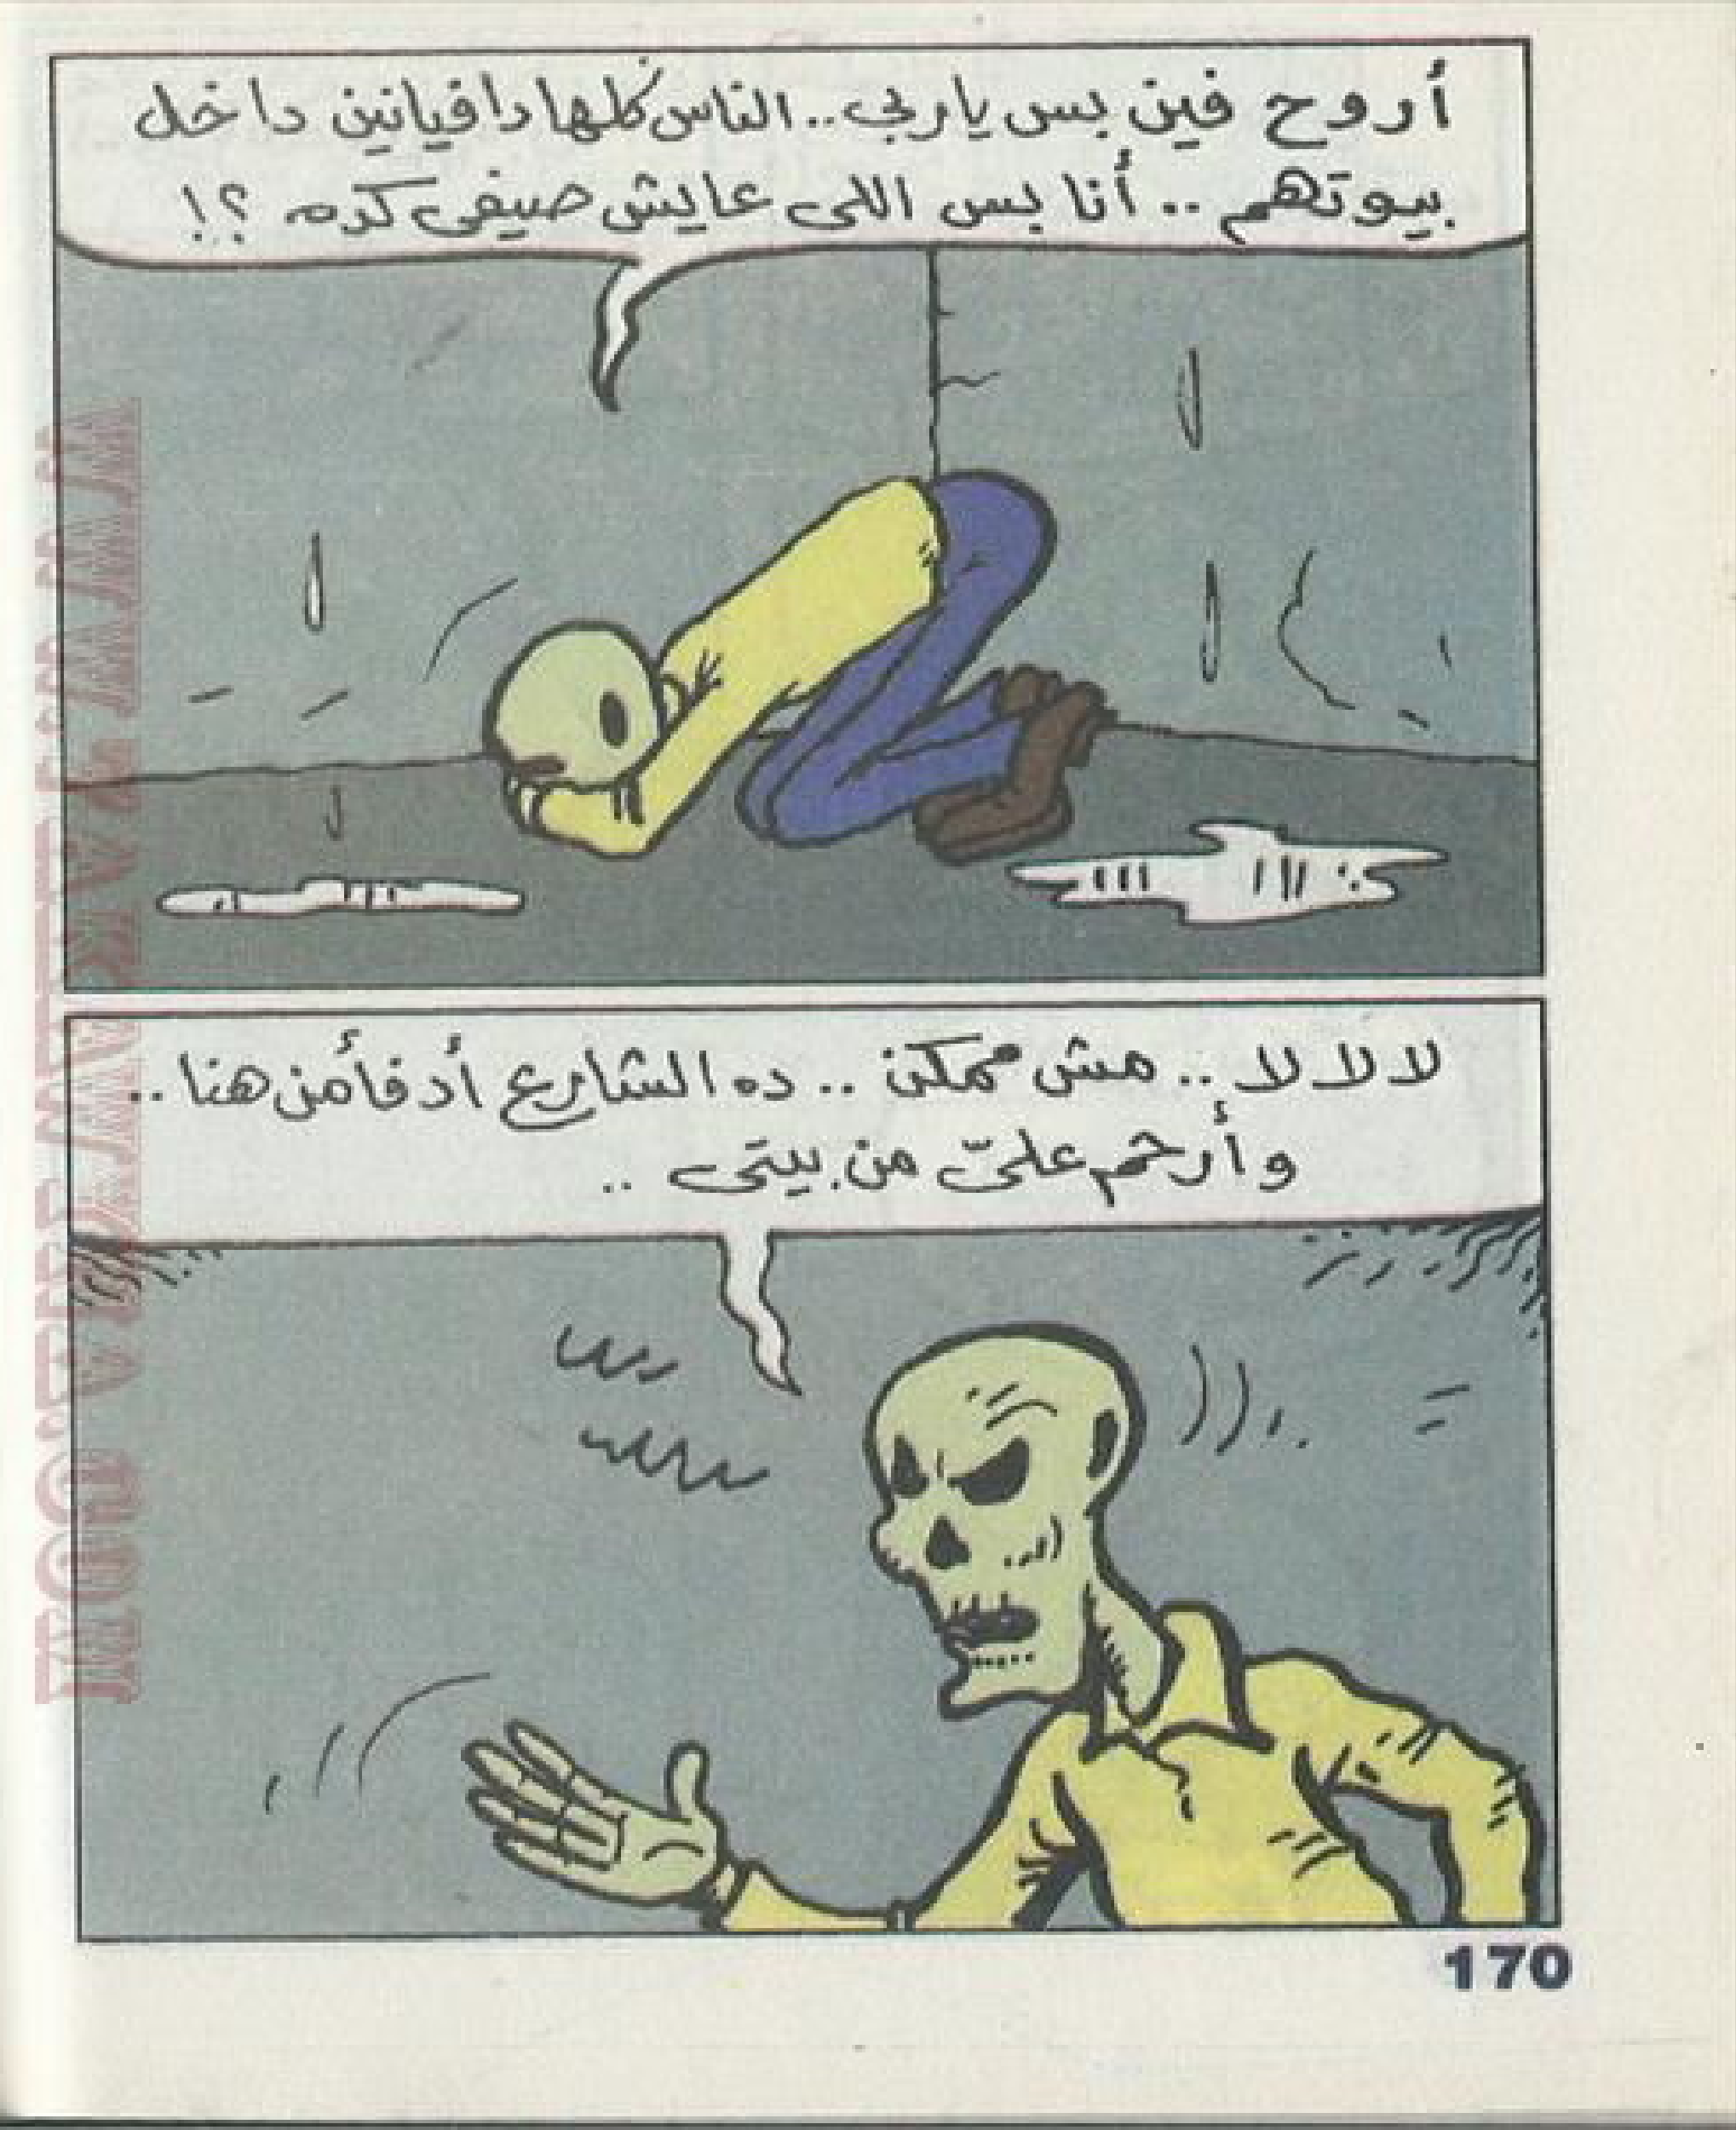 أروح فين بس يا ربي.. الناس كلها دافيانين داخل
بيوتهم.. أنا بس اللى عايش صيفى كده ؟!
لا لا لا.. مش ممكن.. ده الشارع أدفأ من هنا..
وأرحم علىّ من بيتى..
170